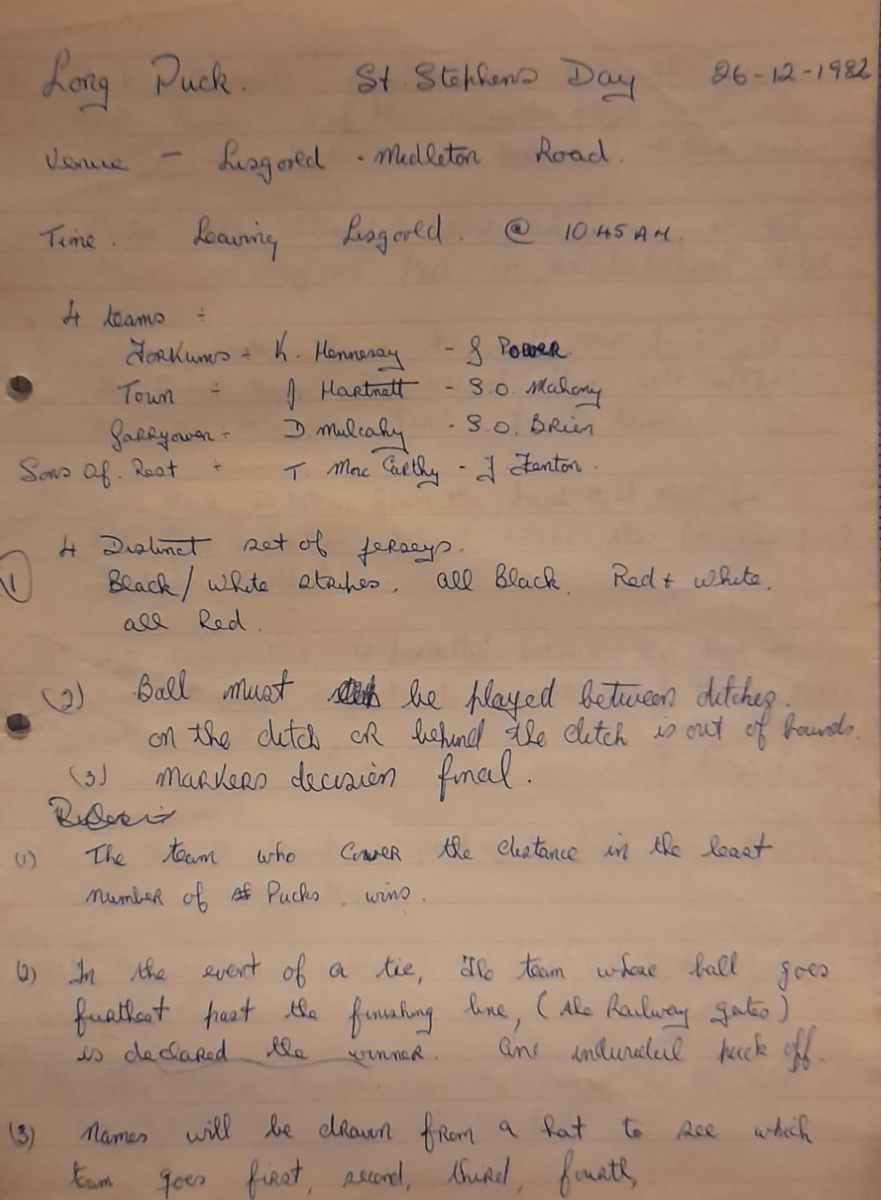 Long Puck. St. Stephens Day 26-12-1982
Venue - Lisgoold - Midleton Road.
Time. Leaving Lisgoold. @ 10.45 AM.
4 teams ÷
K. Hennessy - J Power.
Town ÷ J Hartnett - S.O. Mahony
Garryowen ÷ D. Mulcahy - S.O. Brien
Sons of. Rest ÷ T. Mac Carthy - J Fenton.
4 Distinct set of jerseys.
(1) Black/White stripes, all Black. Red + White.
all Red.
(2) Ball must be played between ditches.
on the ditch or behind the ditch is out of bounds.
(3) Markers decision final.
Rules ÷
(1) The team who cover the distance in the least
number of Pucks. wins.
(2) In the event of a tie, the team whose ball goes
furthest past the finishing line, (the Railway gates)
is declared the winner. puck off.
(3) Names will be drawn from a hat to see which
team goes first, second, third, fourth,